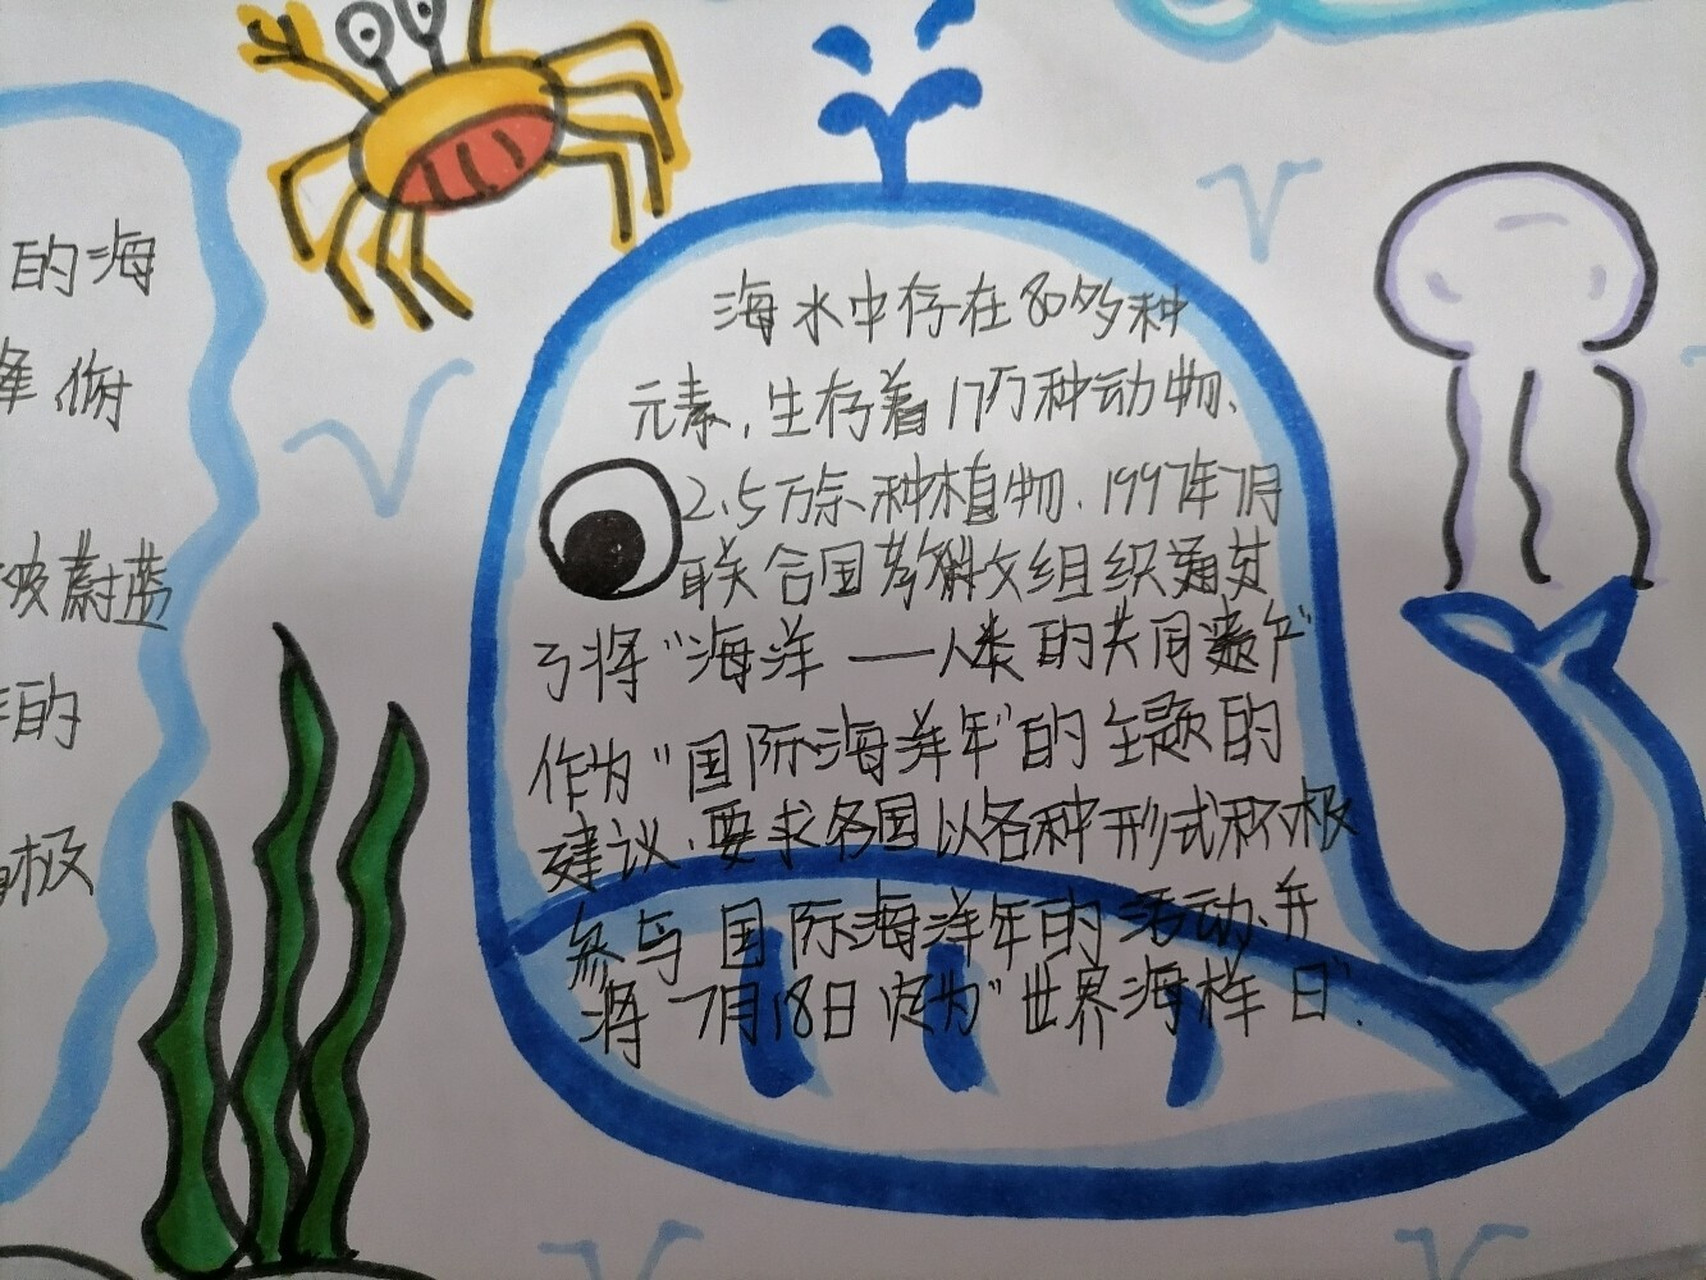 的海
俯
蔚蓝
的
极
海水中存在80多种
元素,生存着17万种动物、
2.5万余种植物.1997年7月
联合国教科文组织通过
了将“海洋——人类的共同遗产”
作为“国际海洋年”的主题的
建议.要求各国以各种形式积极
参与国际海洋年的活动.并
将7月18日定为“世界海样日”.